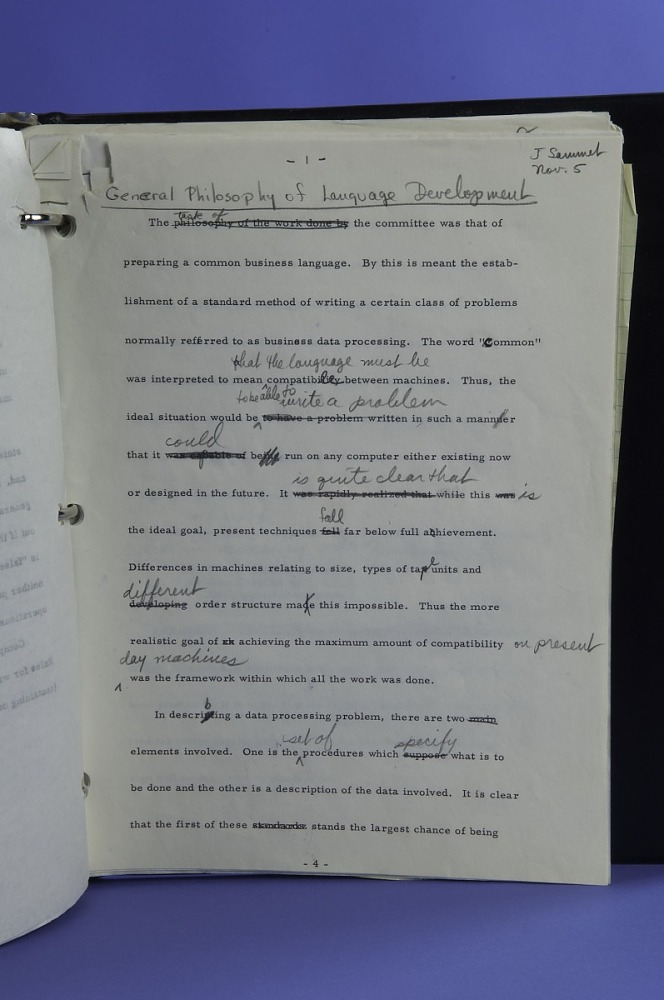 - 1 -
J Sammet
Nov. 5
General Philosophy of Language Development
task of
The philosophy of the work done by the committee was that of
preparing a common business language. By this is meant the estab-
lishment of a standard method of writing a certain class of problems
normally referred to as business data processing. The word "Common"
that the language must be
was interpreted to mean compatibiley between machines. Thus, the
to be able to write a problem
ideal situation would be to have a problem written in such a manner
could
that it was capable of be run on any computer either existing now
is quite clear that
or designed in the future. It was rapidly realized that while this was is
fall
the ideal goal, present techniques fell far below full achievement.
Differences in machines relating to size, types of tape units and
different
developing order structure make this impossible. Thus the more
realistic goal of achieving the maximum amount of compatibility on present
day machines
was the framework within which all the work was done.
b
In describing a data processing problem, there are two main
set of specify
elements involved. One is the procedures which suppose what is to
be done and the other is a description of the data involved. It is clear
that the first of these standards stands the largest chance of being
- 4 -